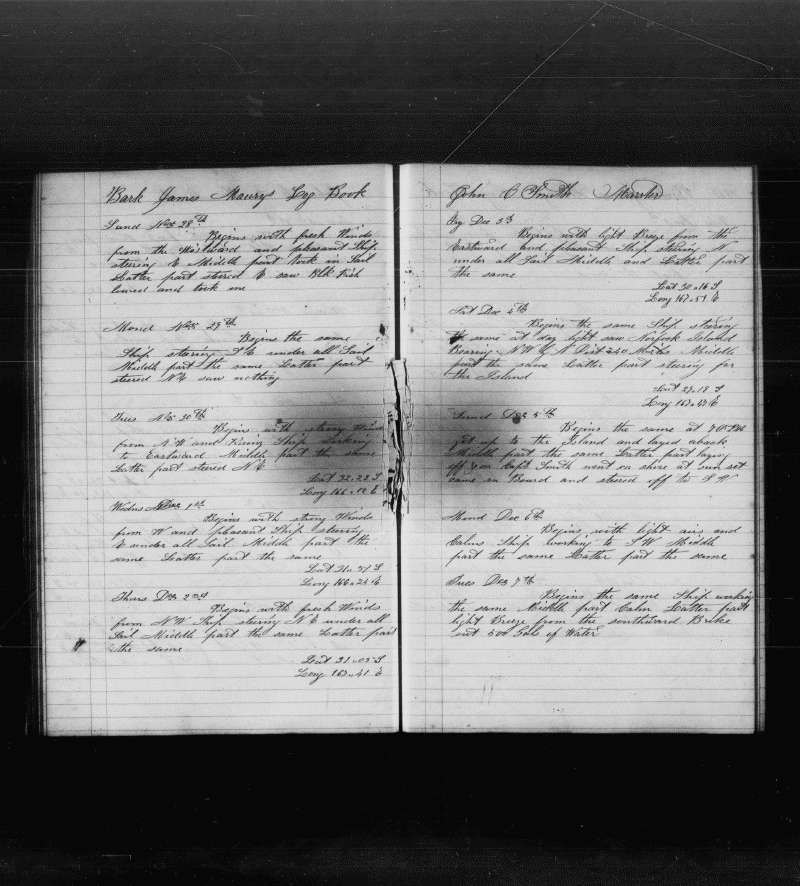 Bark James Maurys Log Book
Sund Nov 28th
Begins with fresh Winds
from the Westward and pleasant Ship
steering E Middle part took in Sail
Latter part stered E saw Blk Fish
lowed and took one
Mond Nov 29th
Begins the same
Ship steering S E under all Sail
Middle part the same Latter part
stered N E saw nothing
Tues Nov 30th
Begins with strong Winds
from N W and Ship
to Eastward Middle part the same
Latter part stered N E
Lat 32.28 S
Long 166.12 E
Wedns Dec 1st
Begins with strong Winds
from W and pleasant Ship steering
E under all Sail Middle part the
same Latter part the same
Lat 31.51 S
Long 166.21 E
Thurs Dec 2nd
Begins with fresh Winds
from N W Ship steering N E under all
Sail Middle part the same Latter part
the same
Lat 31.05 S
Long 167.41 E
John C Smith Master
Fry Dec 3d
Begins with light Breeze from the
Eastward and pleasant Ship steering N
under all Sail Middle and Latter part
the same
Lat 30.16 S
Long 167.51 E
Sat Dec 4th
Begins the same Ship steering
the same at day light saw Norfook Island
Bearing N W Dist Miles Middle
part the same Latter part steering for
the Island
Lat 29.18 S
Long 167.49 E
Sund Dec 5th
Begins the same at 7 O
got up to the Island and layed aback
Middle part the same Latter part laying
off & on Capt Smith went on shore at sun set
came on Board and steered off to S W
Mond Dec 6th
Begins with light airs and
Calms Ship working to S W Middle
part the same Latter part the same
Tues Dec 7th
Begins the same Ship working
the same Middle part Calm Latter part
light Breeze from the southward Broke
out 500 Gals of Water